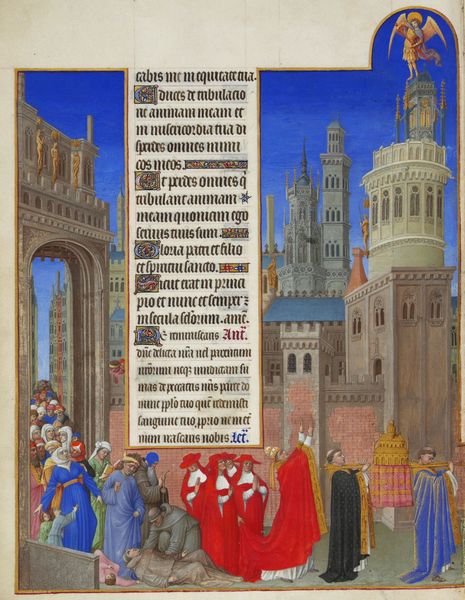 cabis me in equitate tua.
Educes de tribulacio
ne animam meam et
in misericordia tua di
sperdes omnes inimi
cos meos.
Et perdes omnes q̄
tribulant animam
meam quoniam ego
servus tuus sum.
Gloria patri et filio
et spiritui sancto.
Sicut erat in princi
pio et nunc et semper ⁊
in secula sclorum. amē.
Ne reminiscaris Anť.
dn̄e delicta nr̄a vel parentum
nr̄orum neqꝫ vindictam su
mas de peccatis nr̄is parce do
mine pplo tuo quē redemisti
sanguine tuo pprio ne in et
num irascaris nobis. Leť.